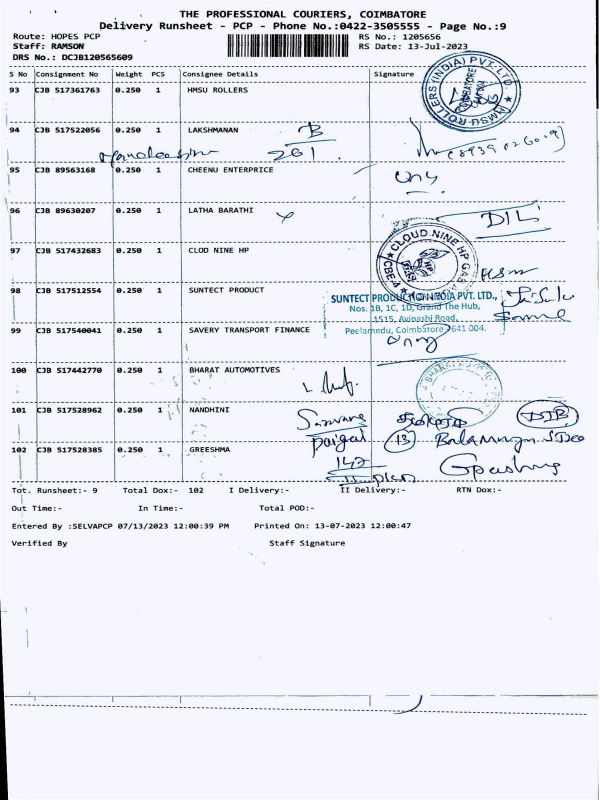 THE PROFESSIONAL COURIERS, COIMBATORE
Delivery Runsheet - PCP - Phone No.:0422-3505555 - Page No.:9
Route: HOPES PCP RS No.: 1205656
Staff: RAMSON RS Date: 13-Jul-2023
DRS No.: DCJB120565609
S No Consignment No Weight PCS Consignee Details Signature
93 CJB 517361763 0.250 1 HMSU ROLLERS
HMSU ROLLERS (INDIA) PVT. LTD.
COIMBATORE
94 CJB 517522056 0.250 1 LAKSHMANAN B
261
95 CJB 89563168 0.250 1 CHEENU ENTERPRICE
96 CJB 89630207 0.250 1 LATHA BARATHI
97 CJB 517432683 0.250 1 CLOD NINE HP
CLOUD NINE HP GAS
CBE-4
98 CJB 517512554 0.250 1 SUNTECT PRODUCT
SUNTECT PRODUCTION INDIA PVT. LTD.,
Nos. 1B, 1C, 1D, Grand The Hub,
1515, Avinashi Road,
Peelamedu, Coimbatore - 641 004.
99 CJB 517540041 0.250 1 SAVERY TRANSPORT FINANCE
100 CJB 517442770 0.250 1 BHARAT AUTOMOTIVES
101 CJB 517528962 0.250 1 NANDHINI
13
102 CJB 517528385 0.250 1 GREESHMA
142
Tot. Runsheet:- 9 Total Dox:- 102 I Delivery:- II Delivery:- RTN Dox:-
Out Time:- In Time:- Total POD:-
Entered By :SELVAPCP 07/13/2023 12:00:39 PM Printed On: 13-07-2023 12:00:47
Verified By Staff Signature